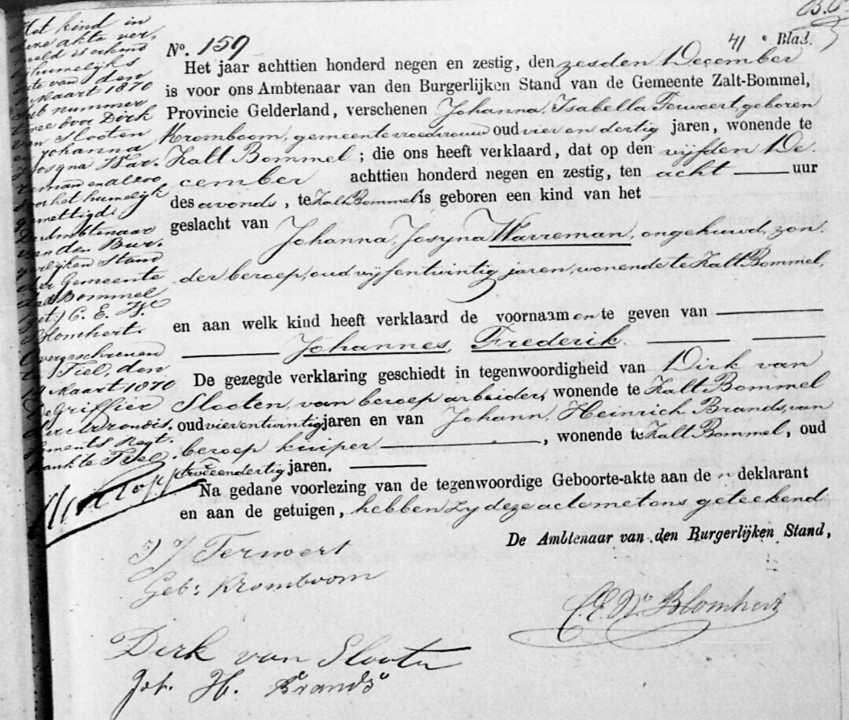 No. 159
41e Blad.
Het jaar achttien honderd negen en zestig, den zesden December
is voor ons Ambtenaar van den Burgerlijken Stand van de Gemeente Zalt-Bommel,
Provincie Gelderland, verschenen Johanna, Isabella Terwoert, geboren
Kromboom, gemeentevroedvrouw oud vier en dertig jaren, wonende te
Zalt Bommel ; die ons heeft verklaard, dat op den vijfden De
cember achttien honderd negen en zestig, ten acht uur
des avonds, te Zalt Bommel is geboren een kind van het
geslacht van
Johanna, Josyna Warreman, ongehuwd, zon
der beroep, oud vijfentwintig jaren, wonende te Zalt Bommel,
en aan welk kind heeft verklaard de voornaamen te geven van
Johannes, Frederik.
De gezegde verklaring geschiedt in tegenwoordigheid van Dirk van
Slooten, van beroep arbeider, wonende te Zalt Bommel
oud vierentwintig jaren en van Johann, Heinrich Brands, van
beroep kuiper, wonende te Zalt Bommel, oud
tweeendertig jaren.
Na gedane voorlezing van de tegenwoordige Geboorte-akte aan de deklarant
en aan de getuigen, hebben zy deze acte met ons geteekend
De Ambtenaar van den Burgerlijken Stand,
J J Terwert
Geb: Kromboom
C. E. W. Blomhert
Dirk van Slooten
Joh. H. Brands
Het kind in
deze akte ver
meld is erkend
Maart 1870
nummer
twee door Dirk
van Slooten
Johanna
Josyna War
reman en alzoo
het huwelijk
gewettigd
Ambtenaar
van den Bur
gerlijken Stand
der Gemeente
Bommel
C. E. W.
Blomhert.
Overgeschreven
Tiel, den
Maart 1870
Griffier
Arrondis
sements Regt
bank te Tiel.